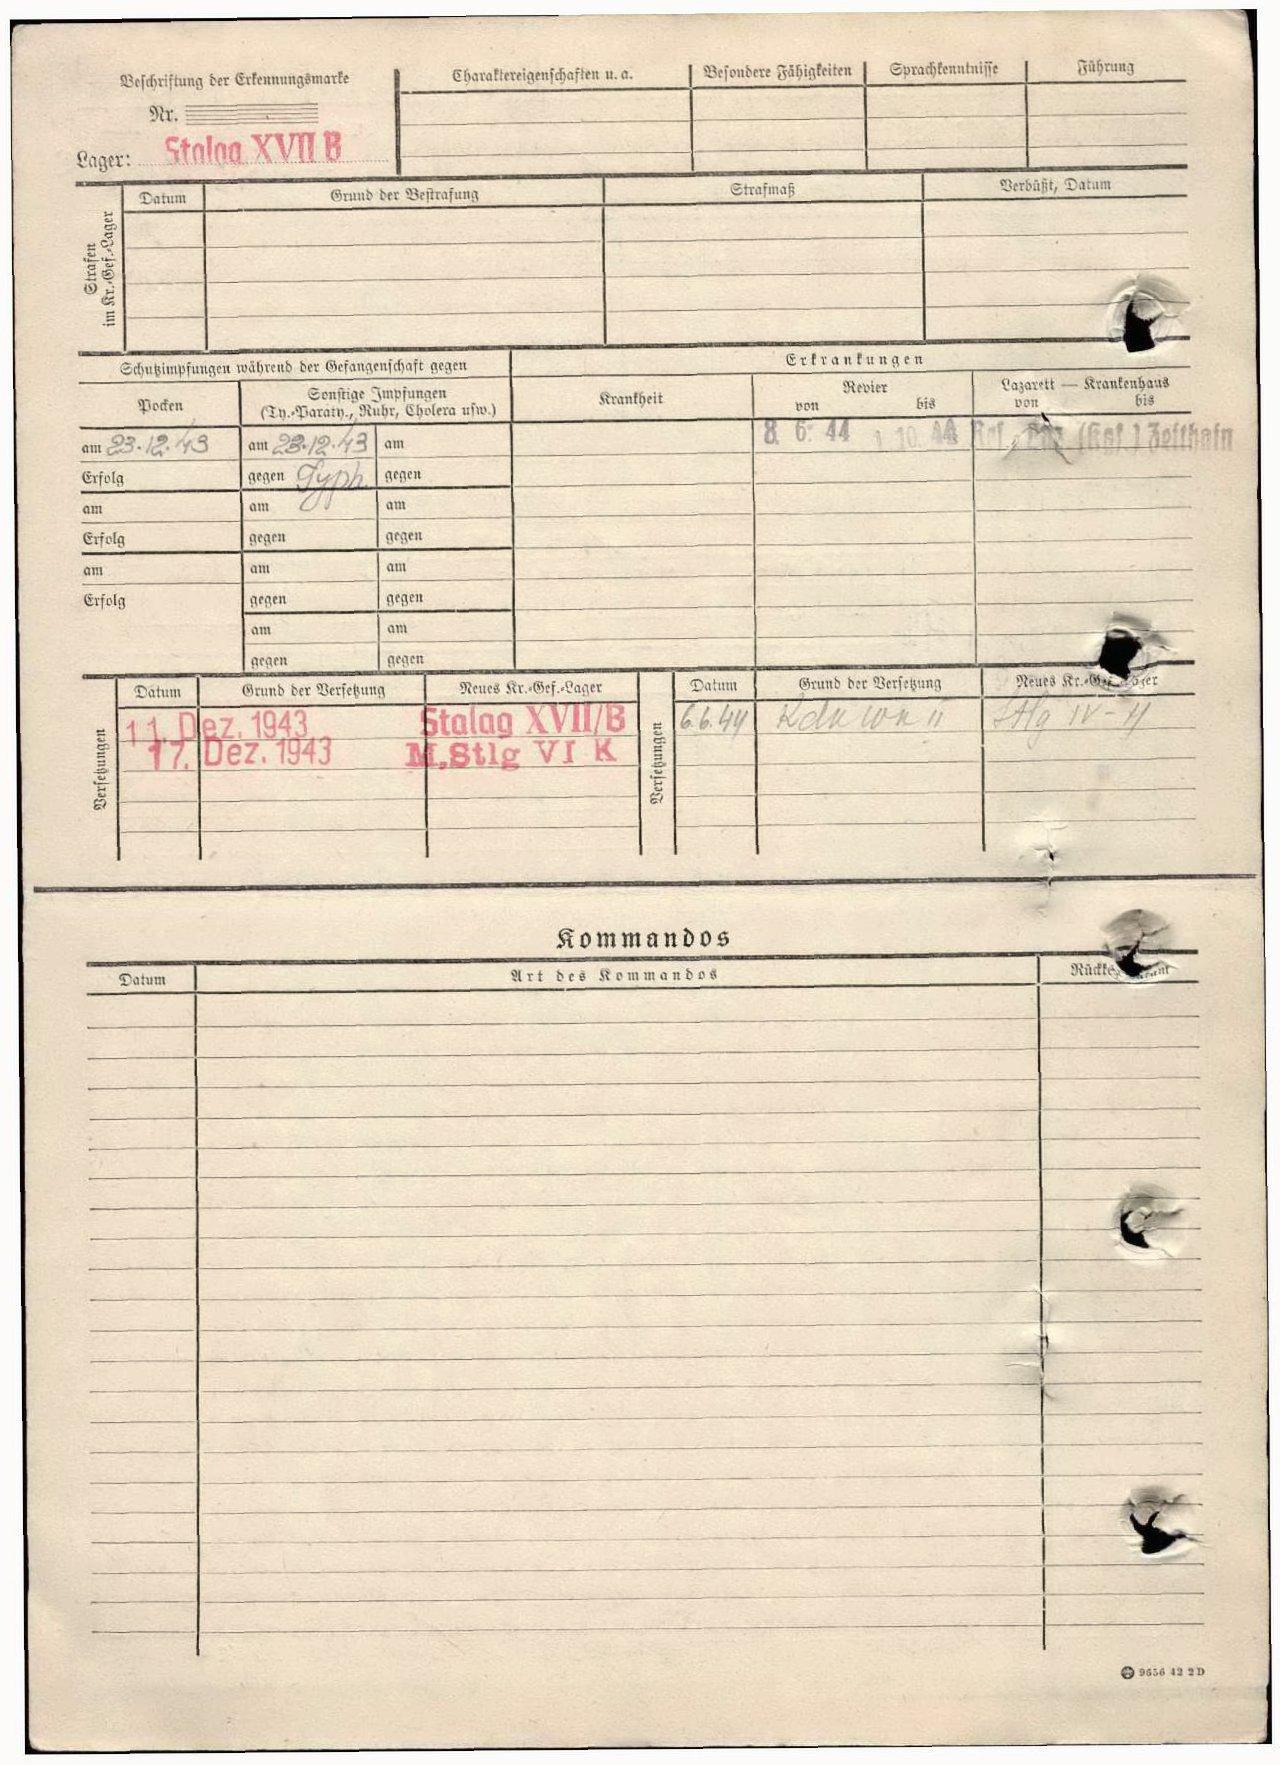 Beschriftung der Erkennungsmarke
Nr.
Lager: Stalag XVII B
Charaktereigenschaften u. a.
Besondere Fähigkeiten
Sprachkenntnisse
Führung
Strafen
im Kr.-Gef.-Lager
Datum
Grund der Bestrafung
Strafmaß
Verbüßt, Datum
Schutzimpfungen während der Gefangenschaft gegen
Erkrankungen
Pocken
Sonstige Impfungen
(Ty.-Paraty., Ruhr, Cholera usw.)
Krankheit
Revier
von bis
Lazarett — Krankenhaus
von bis
am 23.12.43 am 23.12.43 am
8. 6. 44 1. 10. 44 (Kgf.) Zeithain
Erfolg gegen Typh. gegen
am am am
Erfolg gegen gegen
am am am
Erfolg gegen gegen
am am
gegen gegen
Versetzungen
Datum Grund der Versetzung Neues Kr.-Gef.-Lager
11. Dez. 1943 Stalag XVII/B
17. Dez. 1943 M.Stlg VI K
Versetzungen
Datum Grund der Versetzung Neues Kr.-Gef.-Lager
6.6.44 Stlg IV-H
Kommandos
Datum Art des Kommandos
9656 42 2 D